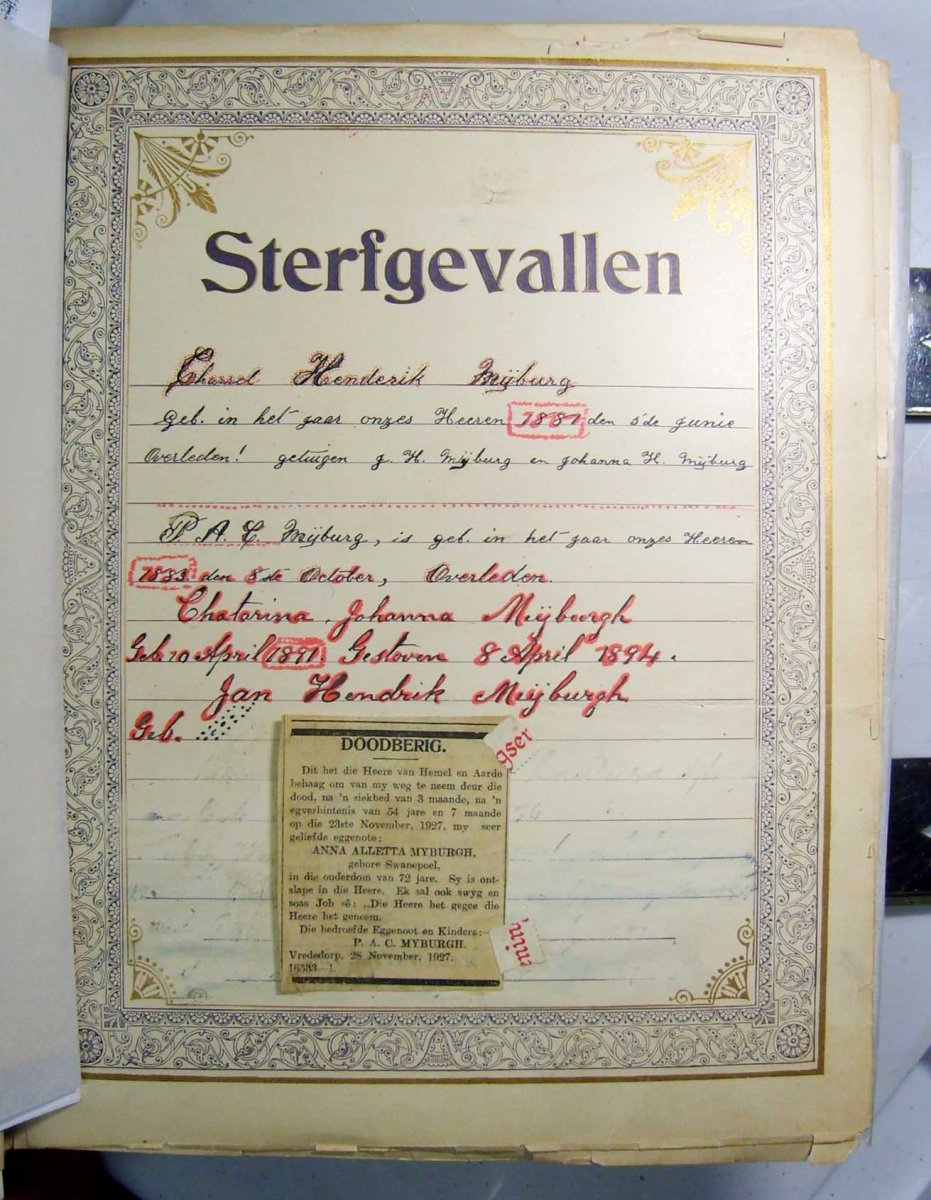 Sterfgevallen
Henderik Mijburg
Geb. in het jaar onzes Heeren 1881 den 5de junie
Overleden! getuigen J. H. Mijburg en Johanna H. Mijburg
P. A. C. Mijburg, is geb. in het jaar onzes Heeren
1883 den 8ste October, Overleden.
Chatarina Johanna Meijburgh
Geb. 10 April 1891 Gestoven 8 April 1894.
Jan Hendrik Meijburgh
Geb.
DOODBERIG.
Dit het die Heere van Hemel en Aarde
behaag om van my weg te neem deur die
dood, na 'n siekbed van 3 maande, na 'n
egverbintenis van 54 jare en 7 maande
op die 23ste November, 1927, my seer
geliefde eggenote:
ANNA ALLETTA MYBURGH,
gebore Swanepoel,
in die ouderdom van 72 jare. Sy is ont-
slape in die Heere. Ek sal ook swyg en
soas Job sê: „Die Heere het gegee die
Heere het geneem.
Die bedroefde Eggenoot en Kinders:—
P. A. C. MYBURGH.
Vrededorp, 28 November, 1927.
16533—1.
gser